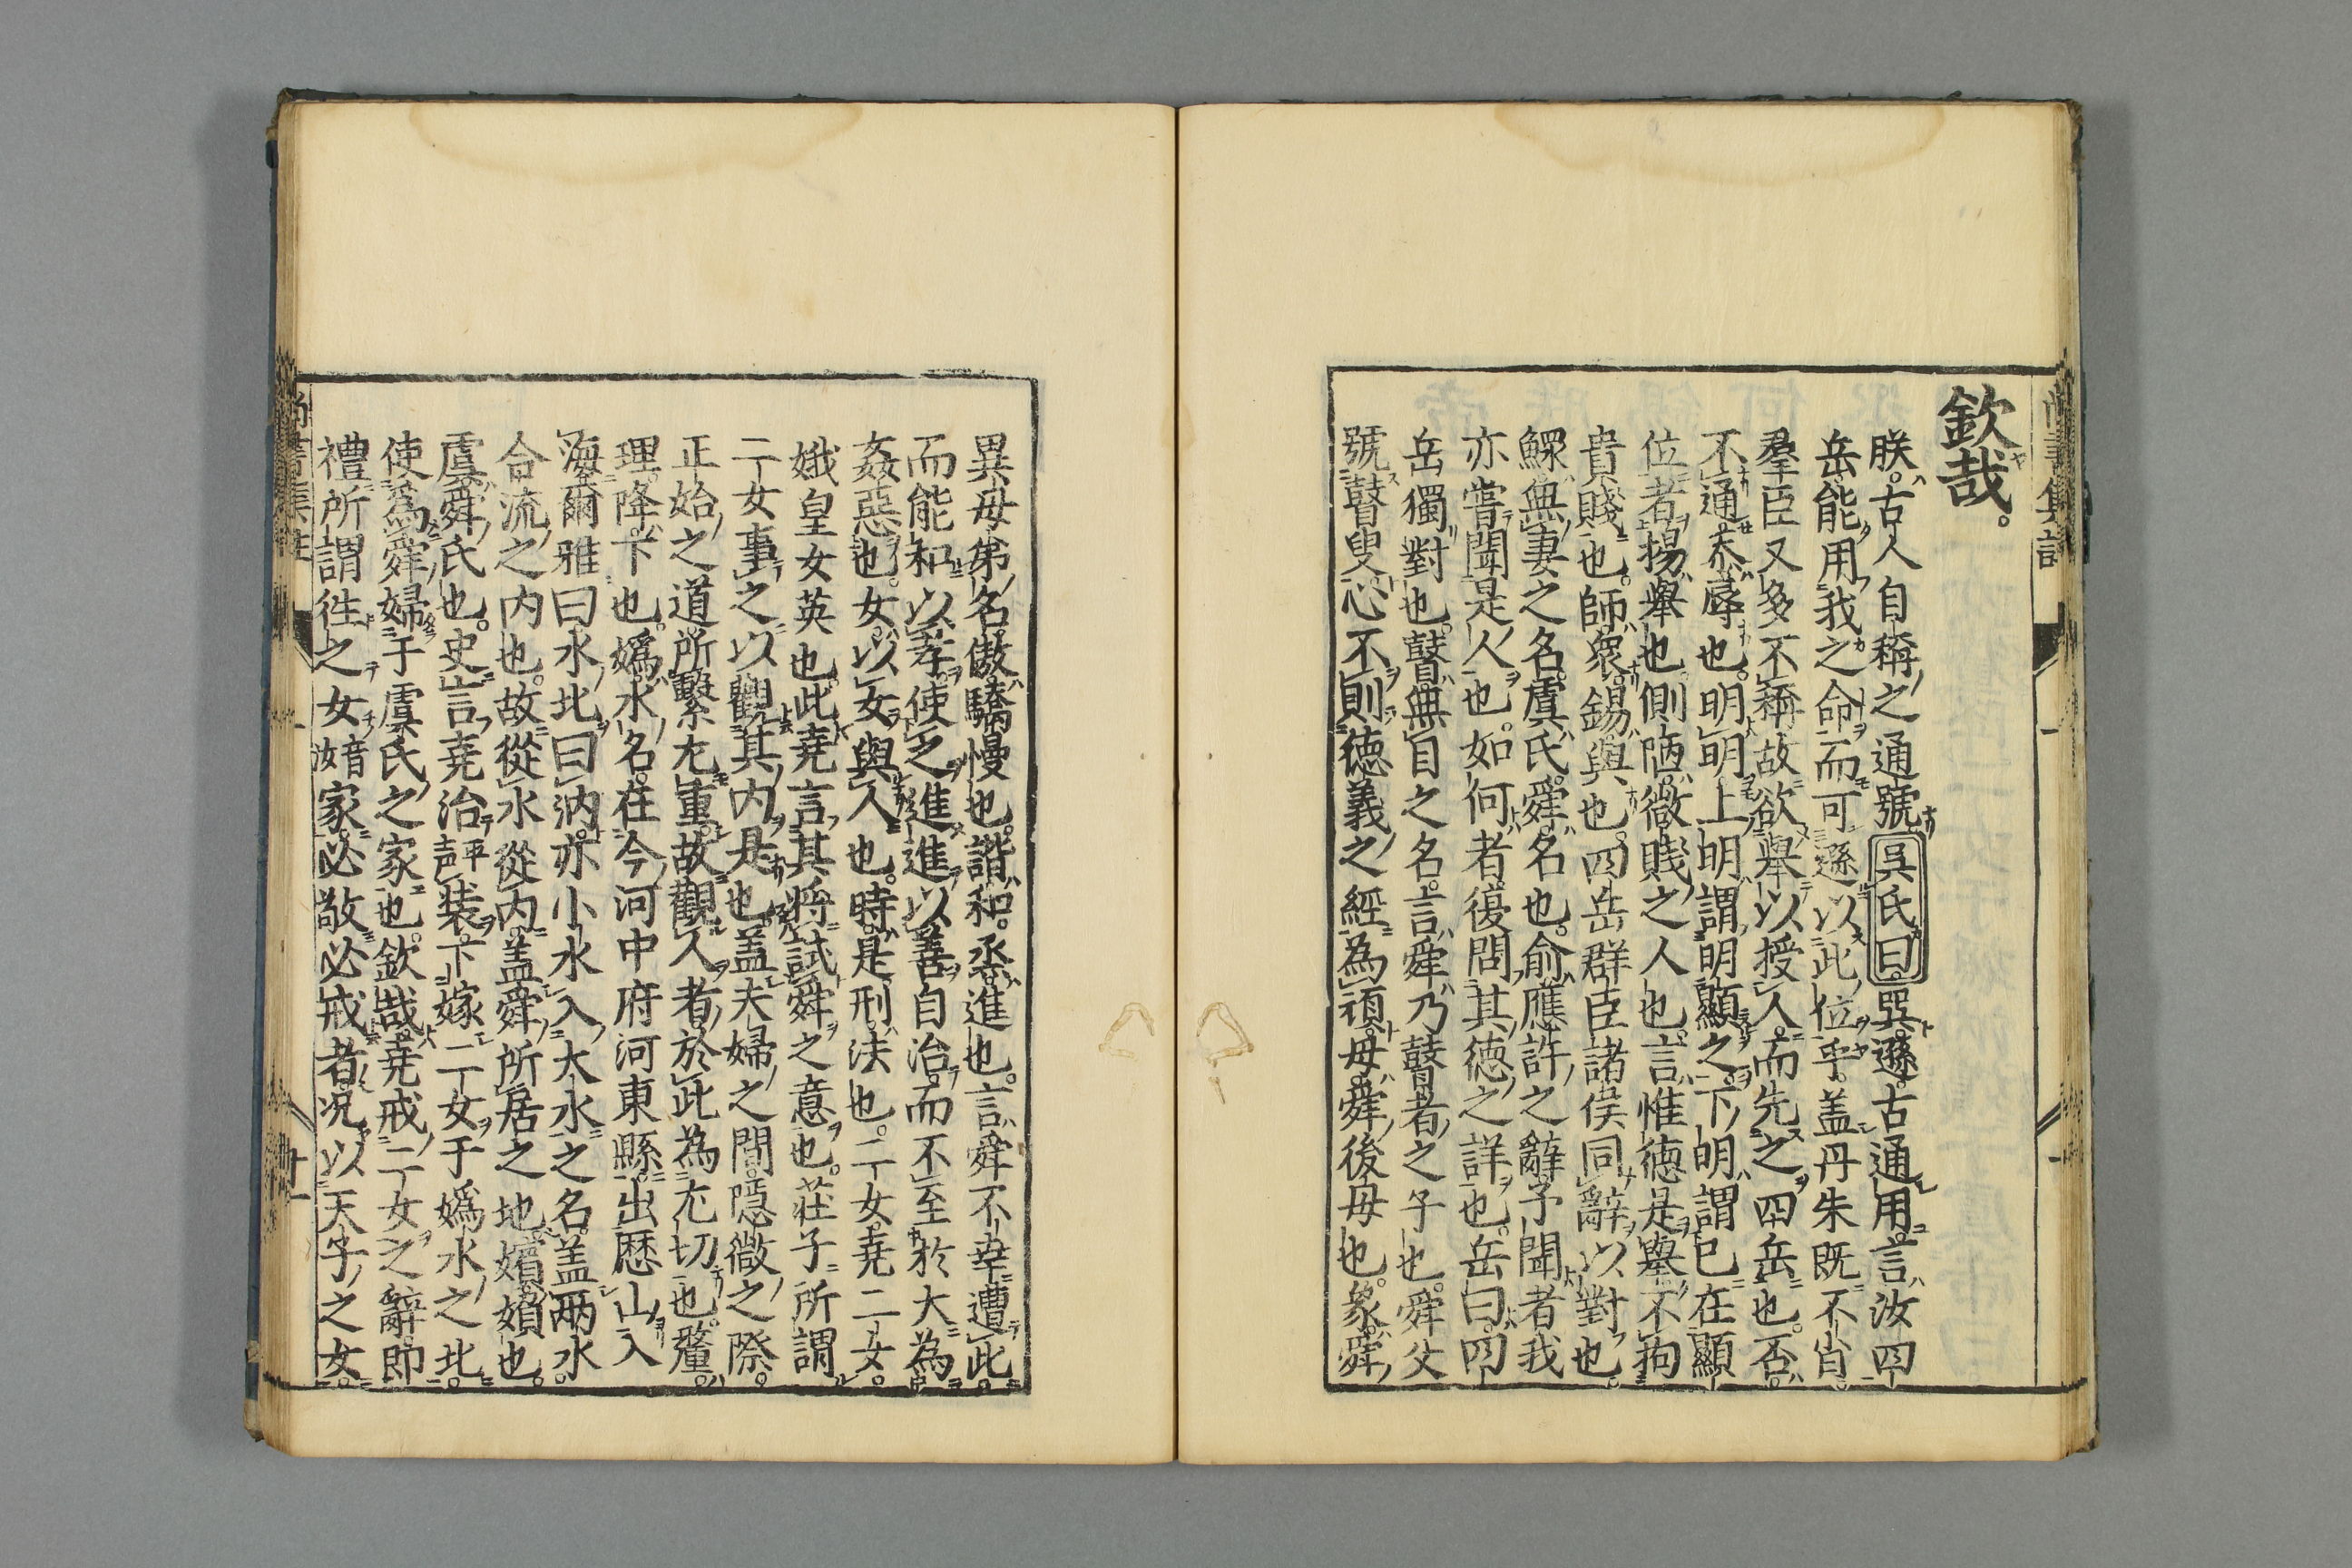 欽哉。
朕。古人自稱之通號吳氏曰。巽。遜。古通用。言汝四
岳能用我之命。而可遜以此位乎。蓋丹朱既不肖。
羣臣又多不稱。故欲舉以授人。而先之四岳也。否。
不通。忝。辱也。明明。上明謂明顯之。下明謂已在顯
位者。揚。舉也。側陋。微賤之人也。言惟德是舉。不拘
貴賤也。師。衆。錫。與也。四岳群臣諸侯同辭以對也。
鰥。無妻之名。虞。氏。舜。名也。俞。應許之辭。予聞者。我
亦嘗聞是人也。如何者。復問其德之詳也。岳曰。四
岳獨對也。瞽。無目之名。言舜乃瞽者之子也。舜父
號瞽叟。心不則德義之經為頑。母。舜後母也。象。舜
異母弟名。傲。驕慢也。諧。和。烝。進也。言舜不幸遭此。
而能和以孝。使之進進以善自治。而不至於大為
姦惡也。女。以女與人也。時。是。刑。法也。二女。堯二女。
娥皇女英也。此堯言其將試舜之意也。莊子所謂
二女事之以觀其內是也。蓋夫婦之間。隱微之際。
正始之道。所繫尤重。故觀人者。於此為尤切也。釐。
理。降。下也。嬀。水名。在今河中府河東縣。出歷山入
海。爾雅曰。水北曰汭。亦小水入大水之名。蓋兩水
合流之內也。故從水從內。蓋舜所居之地。嬪。婦也。
虞。舜氏也。史言堯治平聲裝。下嫁二女于嬀水之北。
使為舜婦于虞氏之家也。欽哉。堯戒二女之辭。即
禮所謂往之女音汝家。必敬必戒者。况以天子之女。
尚書集註 一 十一